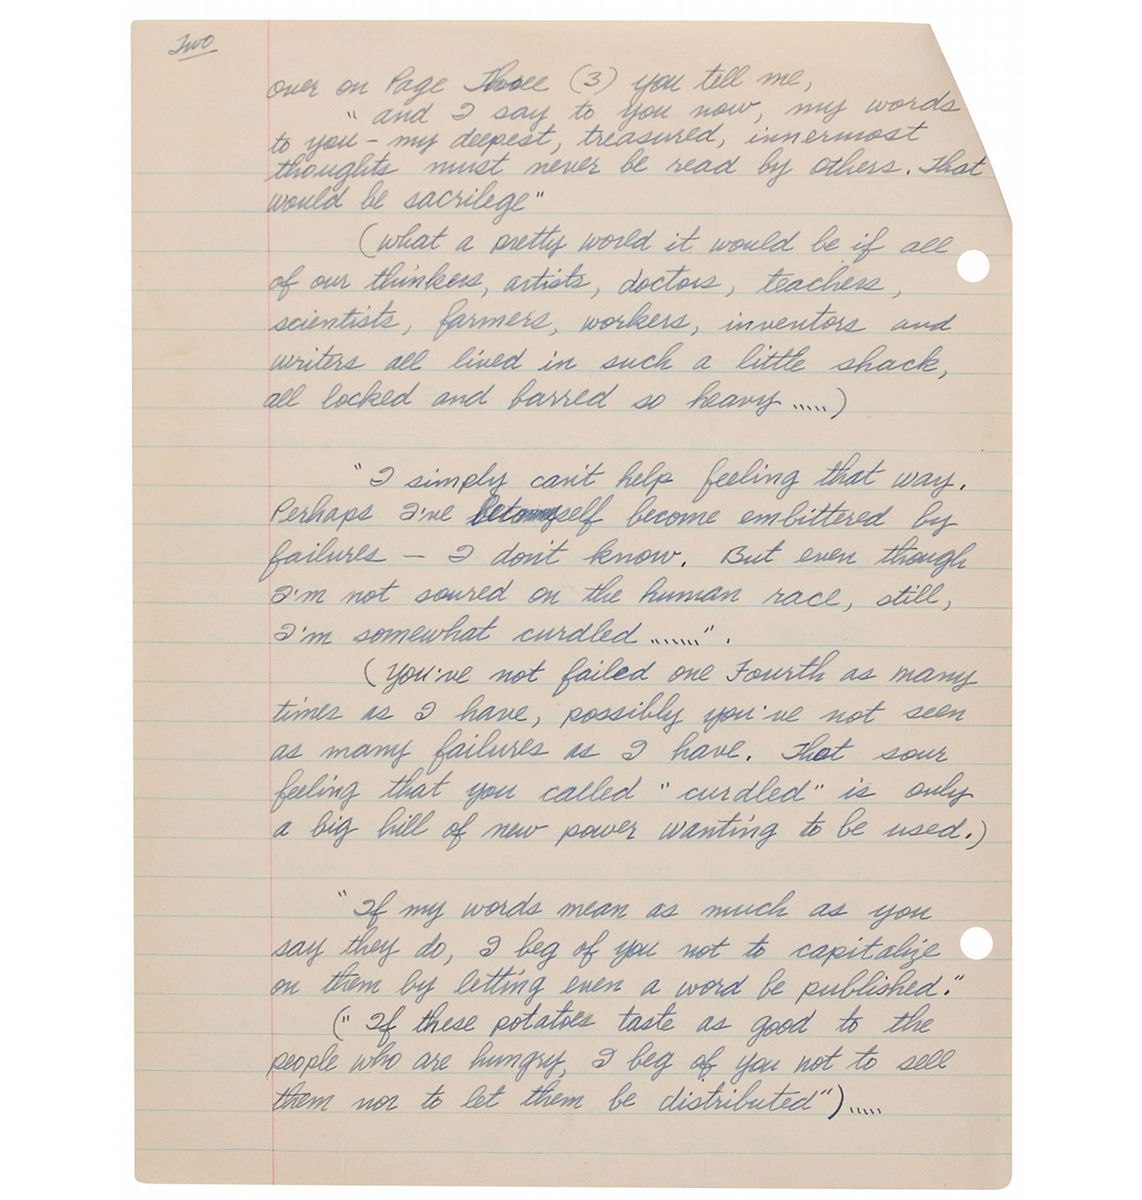 Two
over on Page Three (3) you tell me,
"and I say to you now, my words
to you - my deepest, treasured, innermost
thoughts must never be read by others. That
would be sacrilege"
(what a pretty world it would be if all
of our thinkers, artists, doctors, teachers,
scientists, farmers, workers, inventors and
writers all lived in such a little shack,
all locked and barred so heavy .....)
"I simply can't help feeling that way.
Perhaps I've self become embittered by
failures — I don't know. But even though
I'm not soured on the human race, still,
I'm somewhat curdled ......".
(you've not failed one Fourth as many
times as I have, possibly you've not seen
as many failures as I have. That sour
feeling that you called "curdled" is only
a big hill of new power wanting to be used.)
"If my words mean as much as you
say they do, I beg of you not to capitalize
on them by letting even a word be published."
("If these potatoes taste as good to the
people who are hungry, I beg of you not to sell
them nor to let them be distributed").....